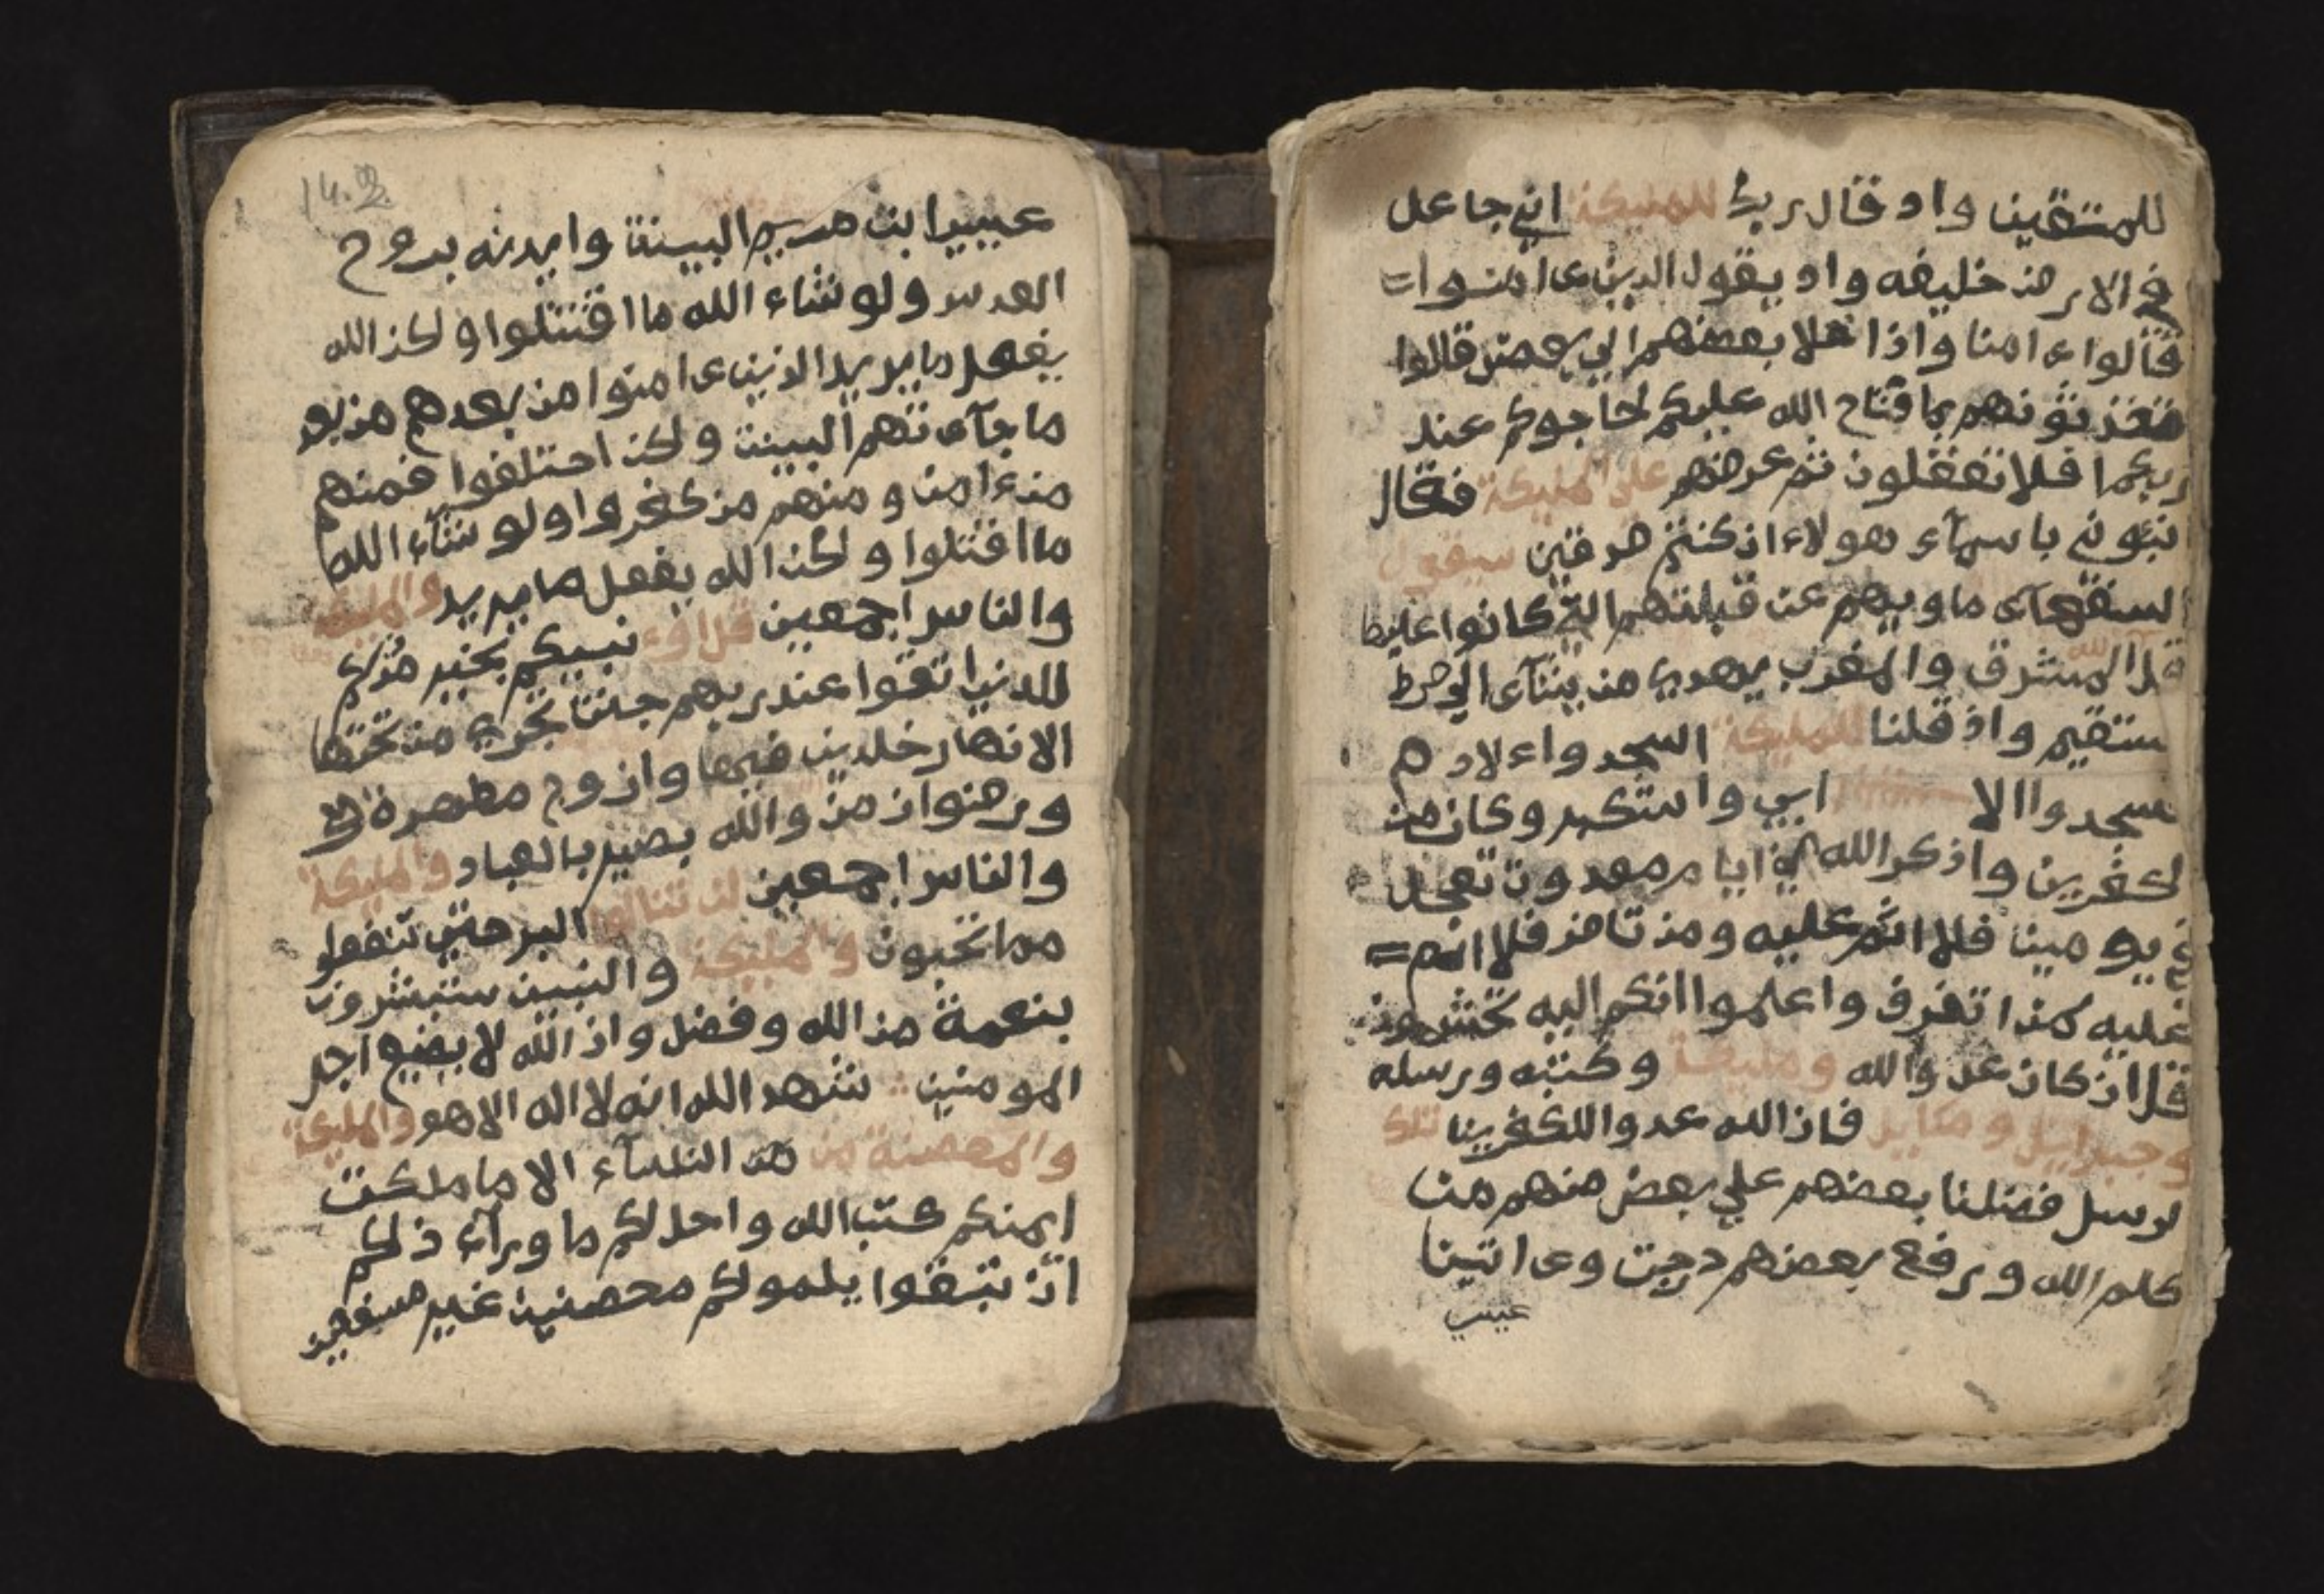 للمتقين واد قال ربك للمليكة اني جاعل
في الارض خليفه واد يقول الدين ءامنوا
قالوا ءامنا واذا خلا بعضهم الي بعض قالوا
بما فتاح الله عليكم لحاجوكم عند
ربكم افلا تعقلون ثم عرضهم علي المليكة فقال
نبئوني باسمآء هولاء ان كنتم صدقين سيقول
السفهآء ما وليهم عن قبلتهم التي كانوا عليها
قل لله المشرق والمغرب يهدي من يشآء الي صرط
مستقيم واذ قلنا للمليكة اسجدوا ءلادم
فسجدوا الا ابي واستكبر وكان من
الكفرين واذكر الله في ايام معدودت تعجل
في يومين فلا اثم عليه ومن تاخر فلا اثم =
عليه واعلموا انكم اليه تحشرون
قل ان كان عدوالله ومليكة وكتبه ورسله
وجبراييل وميكاييل فان الله عدو اللكفرين تلك
لرسل فضلنا بعضهم علي بعض منهم من
كلم الله ورفع بعضهم درجت وءاتينا
عيسي
14.2
ابن مريم البينت وايدنه بروح
القدس ولو شاء الله ما اقتتلوا ولكن الله
يفعل ما يريد الذين ءامنوا من بعدهم من بعد
ما جآءتهم البينت ولكن اختلفوا فمنهم
من ءامن ومنهم من كفروا ولو شآء الله
ما اقتتلوا ولكن الله يفعل ما يريد والمليكة
والناس اجمعين قل اؤ نبيكم بخير
للدين اتقوا عند ربهم جنت تجري من تحتها
الانهار خلدين فيها وازوج مطهرة
ورضوان من والله بصير بالعباد والمليكة
والناس اجمعين لن تنالوا البر حتي تنفقوا
مما تحبون والمليكة والنبين ستبشرون
بنعمة من الله وفضل وان الله لا يضيع اجر
المومنين شهد الله انه لا اله الا هو والمليكة
والمحصنة من من النسآء الا ما ملكت
ايمنكم كتب الله واحل لكم ما ورآء ذلكم
ان تبتغوا محصنين غير مسفحين